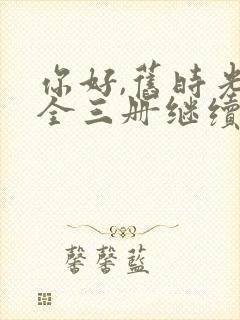 你好,舊時光
全三册继續
馨馨藍